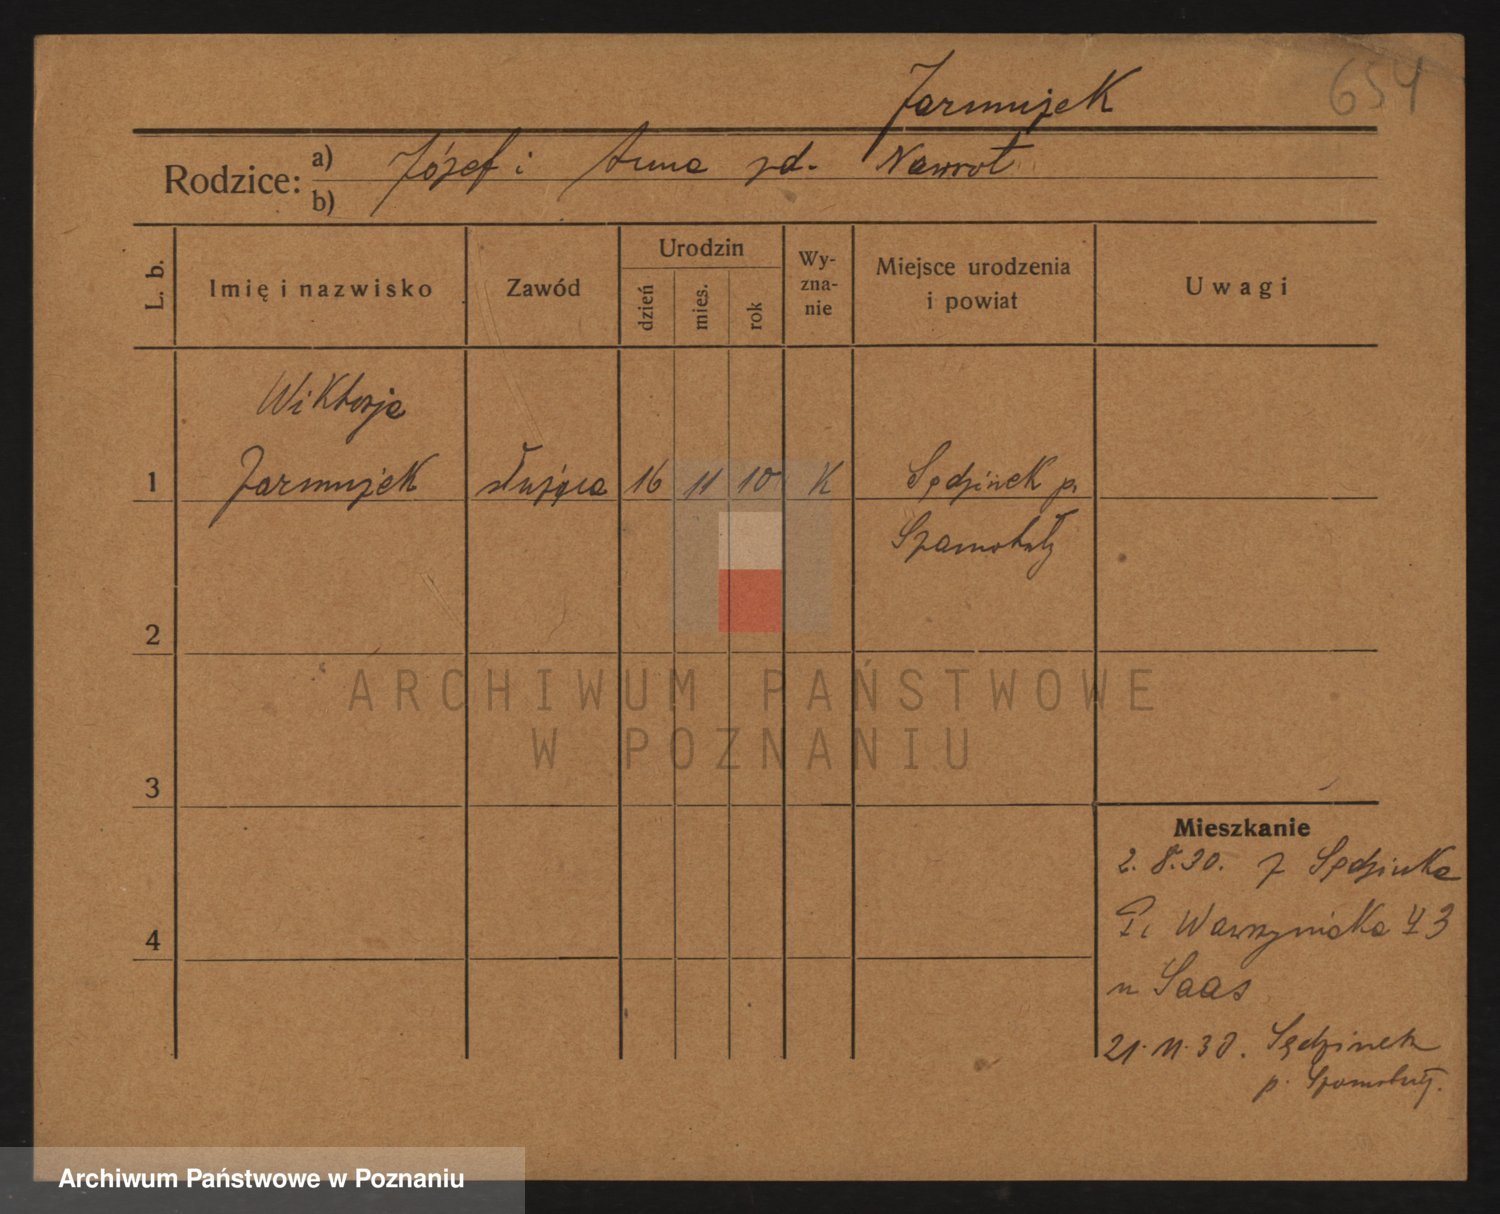 654
Jarmużek
Rodzice:
a) Józef i Anna zd. Nawrot
b)
L. b.
Imię i nazwisko
Zawód
Urodzin
dzień
mies.
rok
Wy-
zna-
nie
Miejsce urodzenia
i powiat
Uwagi
Wiktorja
1 Jarmużek służąca 16 11 10 K Sędzinek p.
Szamotuły
2
3
4
Mieszkanie
2. 8. 30. z Sędzinka
Wawrzyniaka 43
u Saas
21. 11. 30. Sędzinek
p. Szamotuły.
ARCHIWUM PAŃSTWOWE
W POZNANIU
Archiwum Państwowe w Poznaniu